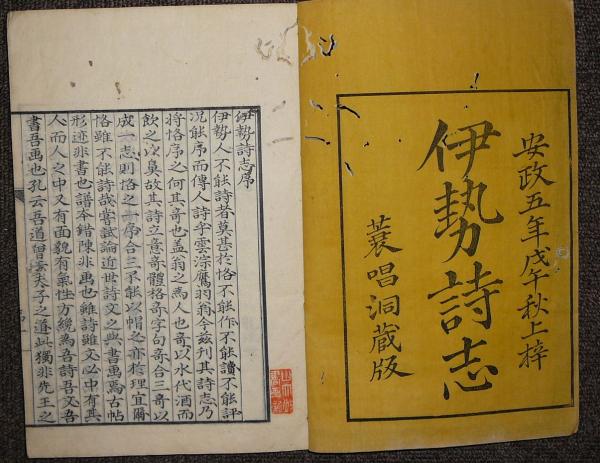 安政五年戊午秋上梓
伊勢詩志
蓑唱洞蔵版
伊勢詩志序
伊勢人不能詩者莫甚於恪不能作不能讀不能評
況能序而傳人詩乎雲涛鷹羽翁今茲刊其詩志乃
将恪序之何其奇也盖翁之為人也奇以水代酒而
飲之次臭故其詩立意奇體格奇字句奇合三奇以
成一志則恪之一序合三不能以帽之亦稔理宜爾
恪雖不能詩哉嘗試論近世詩文之與書画焉古帖
形迹非書也譜本錯陳非画也雖詩雖文必中有其
人而人之中又有面貌有氣性方纔為吾詩吾文吾
書吾画也孔云吾道曽云夫子之道此獨非先王之